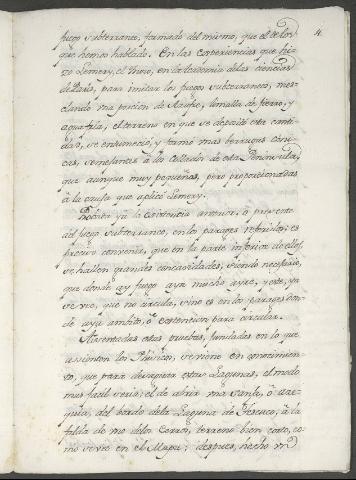 4
fuego subterraneo, formado del mismo, que el de los
que hemos hablado. En las experiencias que hi-
zo Lemery, el Chico, en la Academia delas ciencias
de Paris, para imitar los fuegos subterraneos, mez-
clando una porcion de Azufre, limalla de fierro, y
agua fria, el terreno en que se depositó esta canti-
dad, se entumeció, y formó mas berrugas cóni-
cas, semejantes á los Collados de esta Peninsula,
que aunque muy pequeñas, pero proporcionadas
à la causa que aplicó Lemery.
ya la existencia anterior, ó presente
del fuego subterraneo, en los parages referidos; es
preciso convenir, que en la parte inferior de ellos,
se hallen grandes concavidades, siendo necesario,
que donde ay fuego aya mucho ayre, y este, ya
se ve, que no circula, sino es en los parages don-
de aya ambito, ó extencion para circular.
Asentadas estas pruebas, fundadas en lo que
asientan los Phisicos, se viene en conocimien-
to, que para desaguar estas Lagunas, el modo
mas facil seria, el de abrir una zanja, ó aze-
quia, del bordo dela Laguna de Tescuco, à la
falda de uno delos Cerros, terreno bien corto, co-
mo se ve en el Mapa; i despues, hecho un